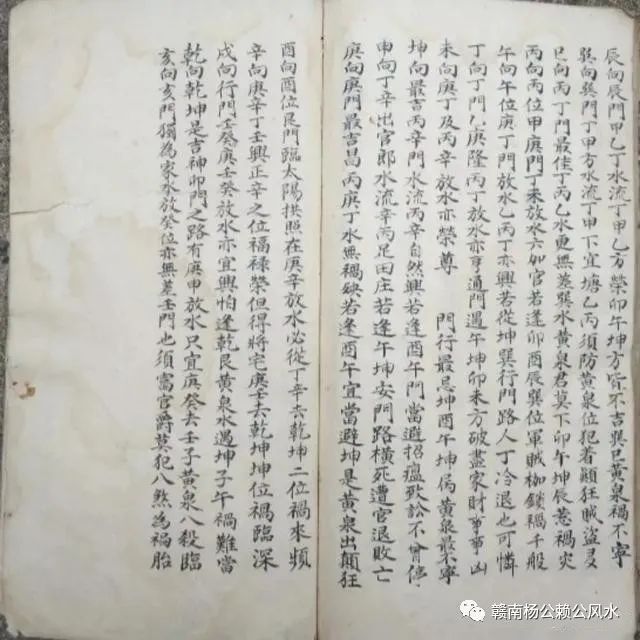 辰向辰門甲乙丁水流丁甲乙方榮卯午坤方官不吉巽巳黃泉禍不寧
巽向巽門丁甲方水流丁甲下宜塘乙丙須防黃泉位犯著顛狂賊盜
巳向丙丁門最佳丁丙乙水更無差巽水黃泉君莫下卯午坤辰惹禍災
丙向丙位甲庚門丁未放水六如官若逢卯酉辰巽位軍賊枷鎖禍千般
午向午位庚丁門放水乙丙丁亦興若從坤巽行門路人丁冷退也可憐
丁向丁門庚隆丙丁放水亦亨通門遇午坤卯未方破盡家財事事凶
未向庚丁及丙辛放水亦榮尊 門行最忌坤酉午坤局黃泉最不寧
坤向最吉丙辛門水流丙辛自然興若逢酉午門當避招瘟致訟不會停
申向丁辛出官郎水流辛丙足田庄若逢午坤安門路橫死遭官退敗亡
庚向庚門最吉昌丙庚丁水無禍缺若逢酉午宜當避坤是黃泉出顛狂
酉向酉位艮門臨太陽拱照在庚辛放水必從丁辛去乾坤二位禍來頻
辛向庚辛丁壬興正辛之位福祿榮但得將宅庚壬去乾坤坤位禍臨深
戌向行門壬癸庚壬癸放水亦宜興怕逢乾艮黃泉水遇坤子午禍難當
乾向乾坤是吉神卯門之路有庚甲放水只宜庚癸去壬子黃泉八殺臨
亥向亥門獨為家水放癸位亦無差壬門也須當官爵莫犯八煞為禍胎
赣南杨公赖公风水